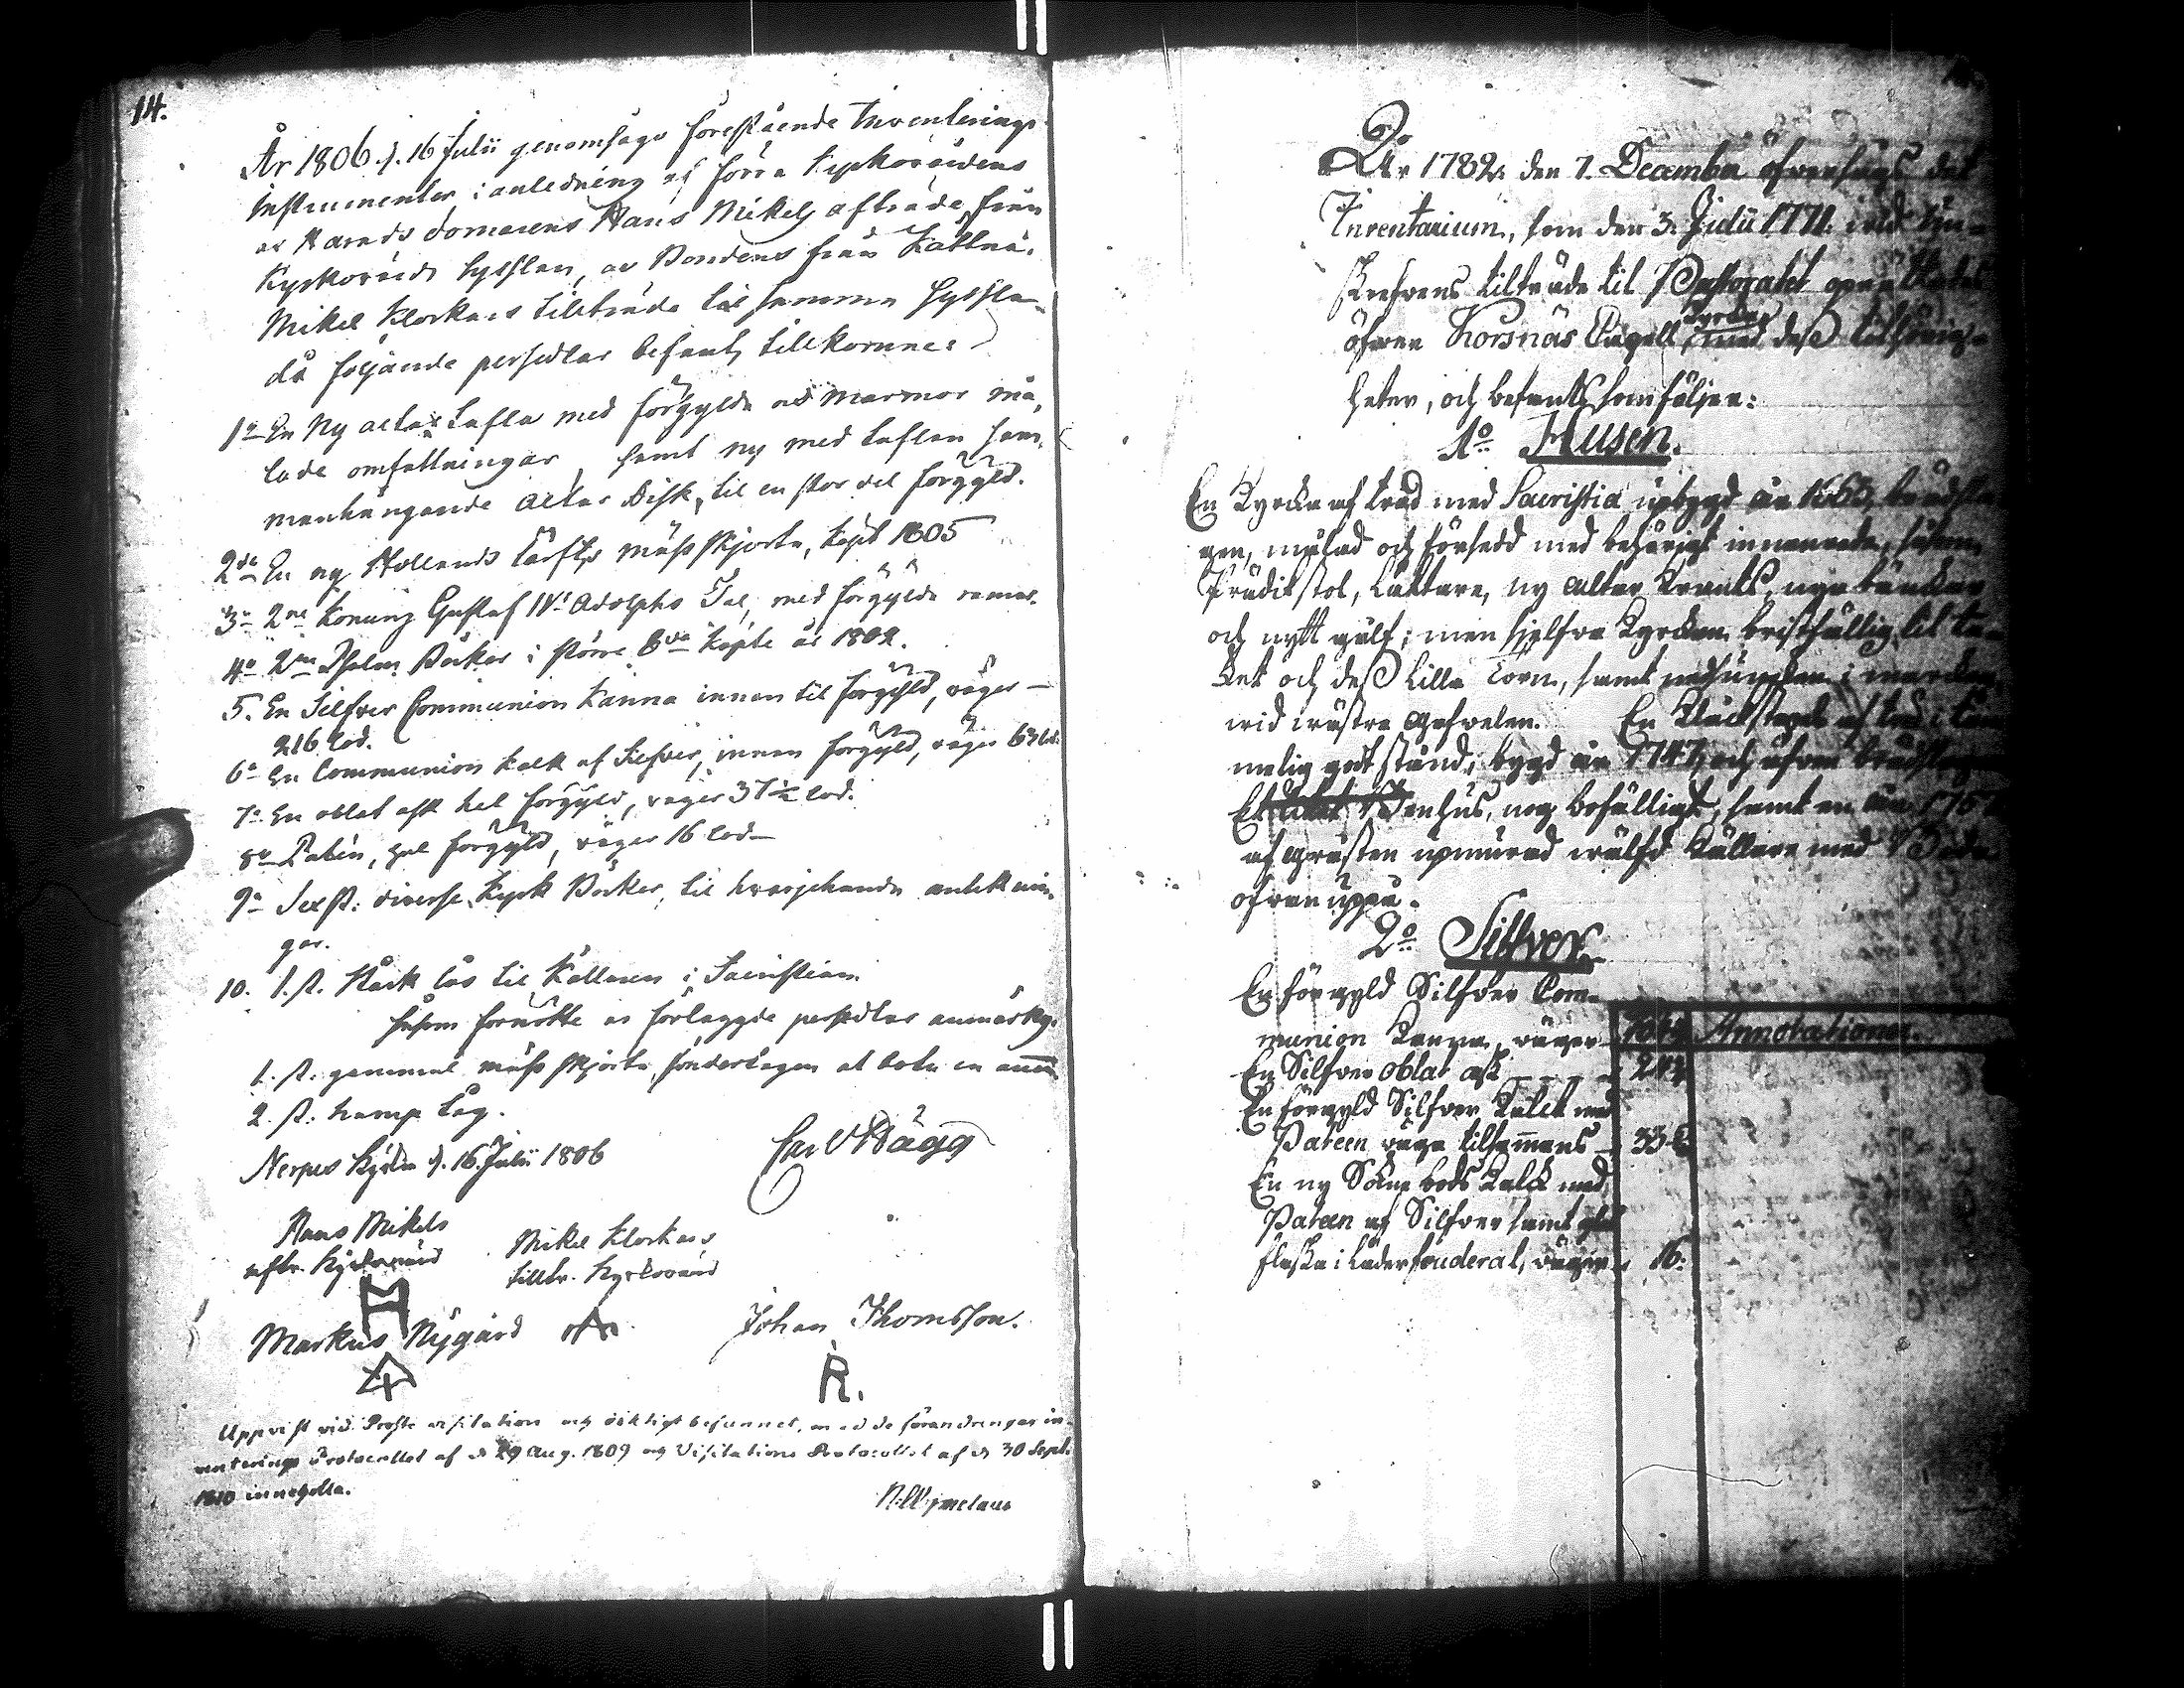 14.
År 1806 d. 16 Julii genomsågs förestående Inventerings
Instrumenter i anledning af förra Kyrkovärdens
oc Härads domarens Hans Mikels afträde från
Kyrkovärds sysslan, oc Bondens från Kåttnäs
Mikel Klockars tillträde til samma syssla
då följande persedlar befants tillkomne:
1o En Ny altar Tafla med förgylda och marmor må,
lade omfattningar, samt ny med taflan sam,
manhängande altar disk, til en stor del förgyld.
2do En ny Hollands Lärfts mässskjorta, köpt 1805
3o 2ne Konung Gustaf IV Adolphs Tal, med förgylda ramar.
4o 2ne Psalm Böcker i större 8vo köpte år 1802.
5. En Silfver Communion Kanna innan til förgyld, väger
216 lod.
6o En Communion kalk af Silfver, innan förgyld, väger 63 lod.
7o En oblat ask hel förgyld, väger 37½ lod.
8o Patén, hel förgyld, väger 16 lod
9o Sex st: diverse Kyrk Böcker, til hvarjehanda anteknin,
gar.
10. 1. st. Starkt lås til Källaren i Sacristian
Såsom fornötte oc förlagde persedlar anmärktes.
1. st. gammal mäss skjorta söndertagen at bota en annan
2. st. hamp tåg.
Nerpes Kyrka d. 16. Julii 1806
Carl Hägg
Hans Mikels
aftr. Kyrkovärd
Mikel Klockars
tilltr. Kyrkovärd
Markus Nygård
Johan Thomsson.
R.
Uppvist vid Proste visitation och riktigt befunnet, med de förandringar in-
venterings Protocollet af d. 29 Aug. 1809 och Visitations Protocollet af d. 30 Sept.
1810 innehålla.
År 1782 den 7. December öfversågs det
Inventarium, som den 3. Julii 1771. vid
skrefvens tilträde til Pastoratet upprättades
öfver Korsnäs Capell Kyrka med dess tilhörig-
heter, och befants som följer:
1o Husen.
En Kyrka af träd med Sacristia upbygd år 1663,
gen, målad och försedd med behörigt innanrede, såsom
Prädikstol, Läktare, ny Altar Krants, nya bänckar
och nytt gålf; men sjelfva Kyrckan bristfällig til ta-
ket och dess lilla Torn, samt nedsuncken i marcken
vid wästra gafvelen. En Klåckstapel af träd i tem
melig godt stånd, bygd år 1747, och äfven
Et Wedhus, nog bofälligt, samt en år 175
af gråsten upmurad wälfd Källare med Bod
ofvan uppå.
2o Silfver.
En förgyld Silfver Com-
munion Kanna, väger Annotationer.
En Silfver oblat ask 24
En förgyld Silfver Kalck med
Pateen väga tilsammans 33
En ny Sockne bods Kalck med
Pateen af Silfver samt glas
flaska i Läderfouderal, wäger 16.